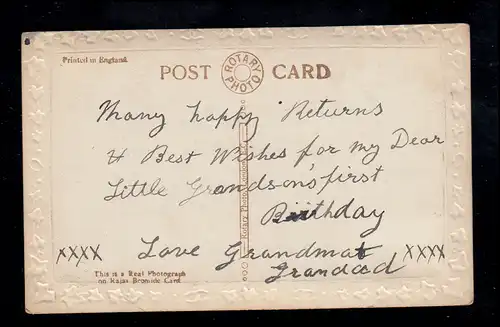 Printed in England.
POST CARD
ROTARY PHOTO
Many happy Returns
& Best Wishes for my Dear
Little Grandson's first
Birthday
xxxx Love Grandma & xxxx
Grandad
This is a Real Photograph
on Rajar Bromide Card.